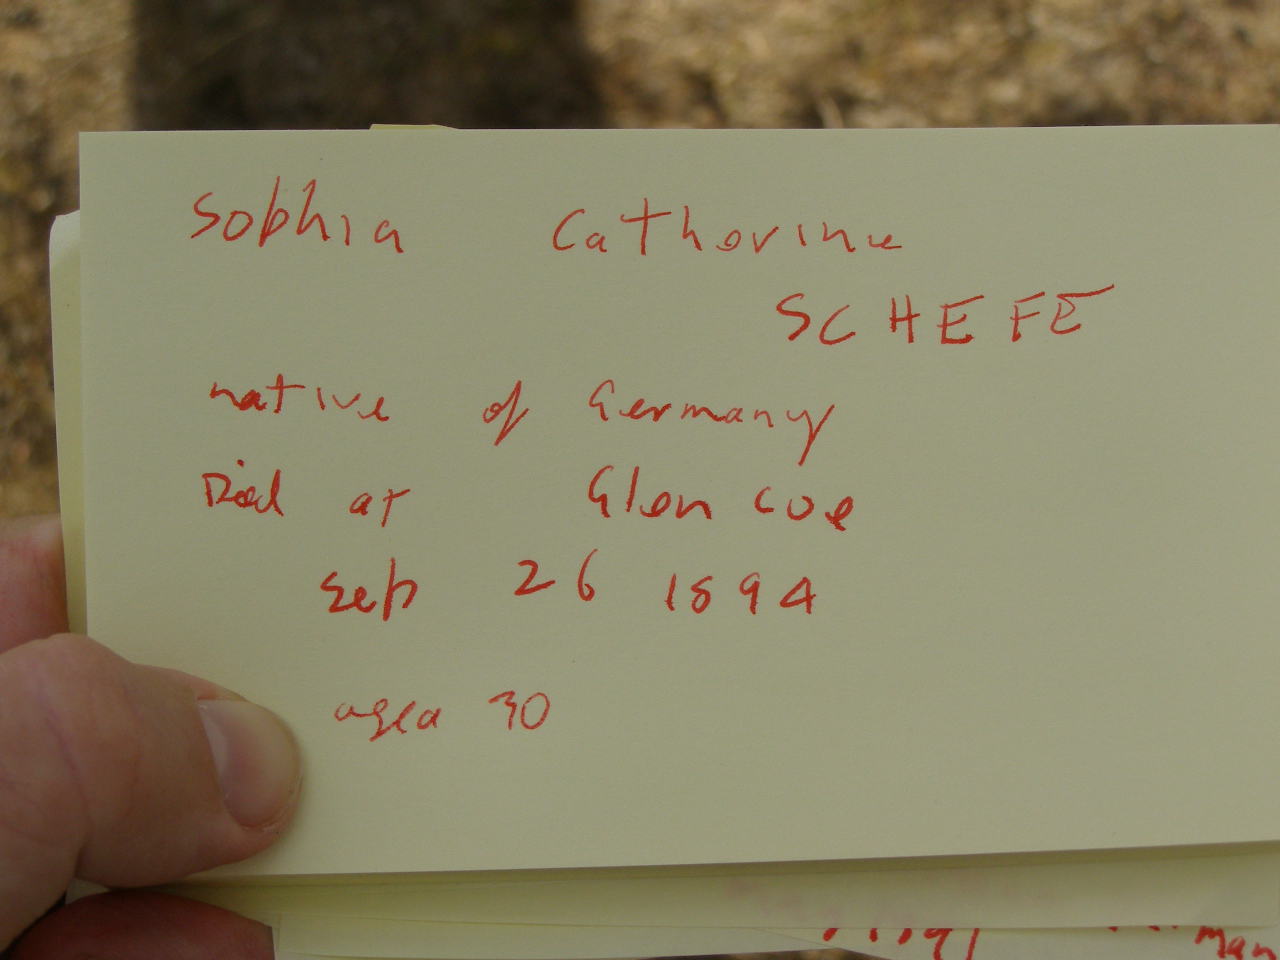 Sophia Catherine
SCHEFE
native of Germany
Died at Glencoe
Sep 26 1894
aged 30
man